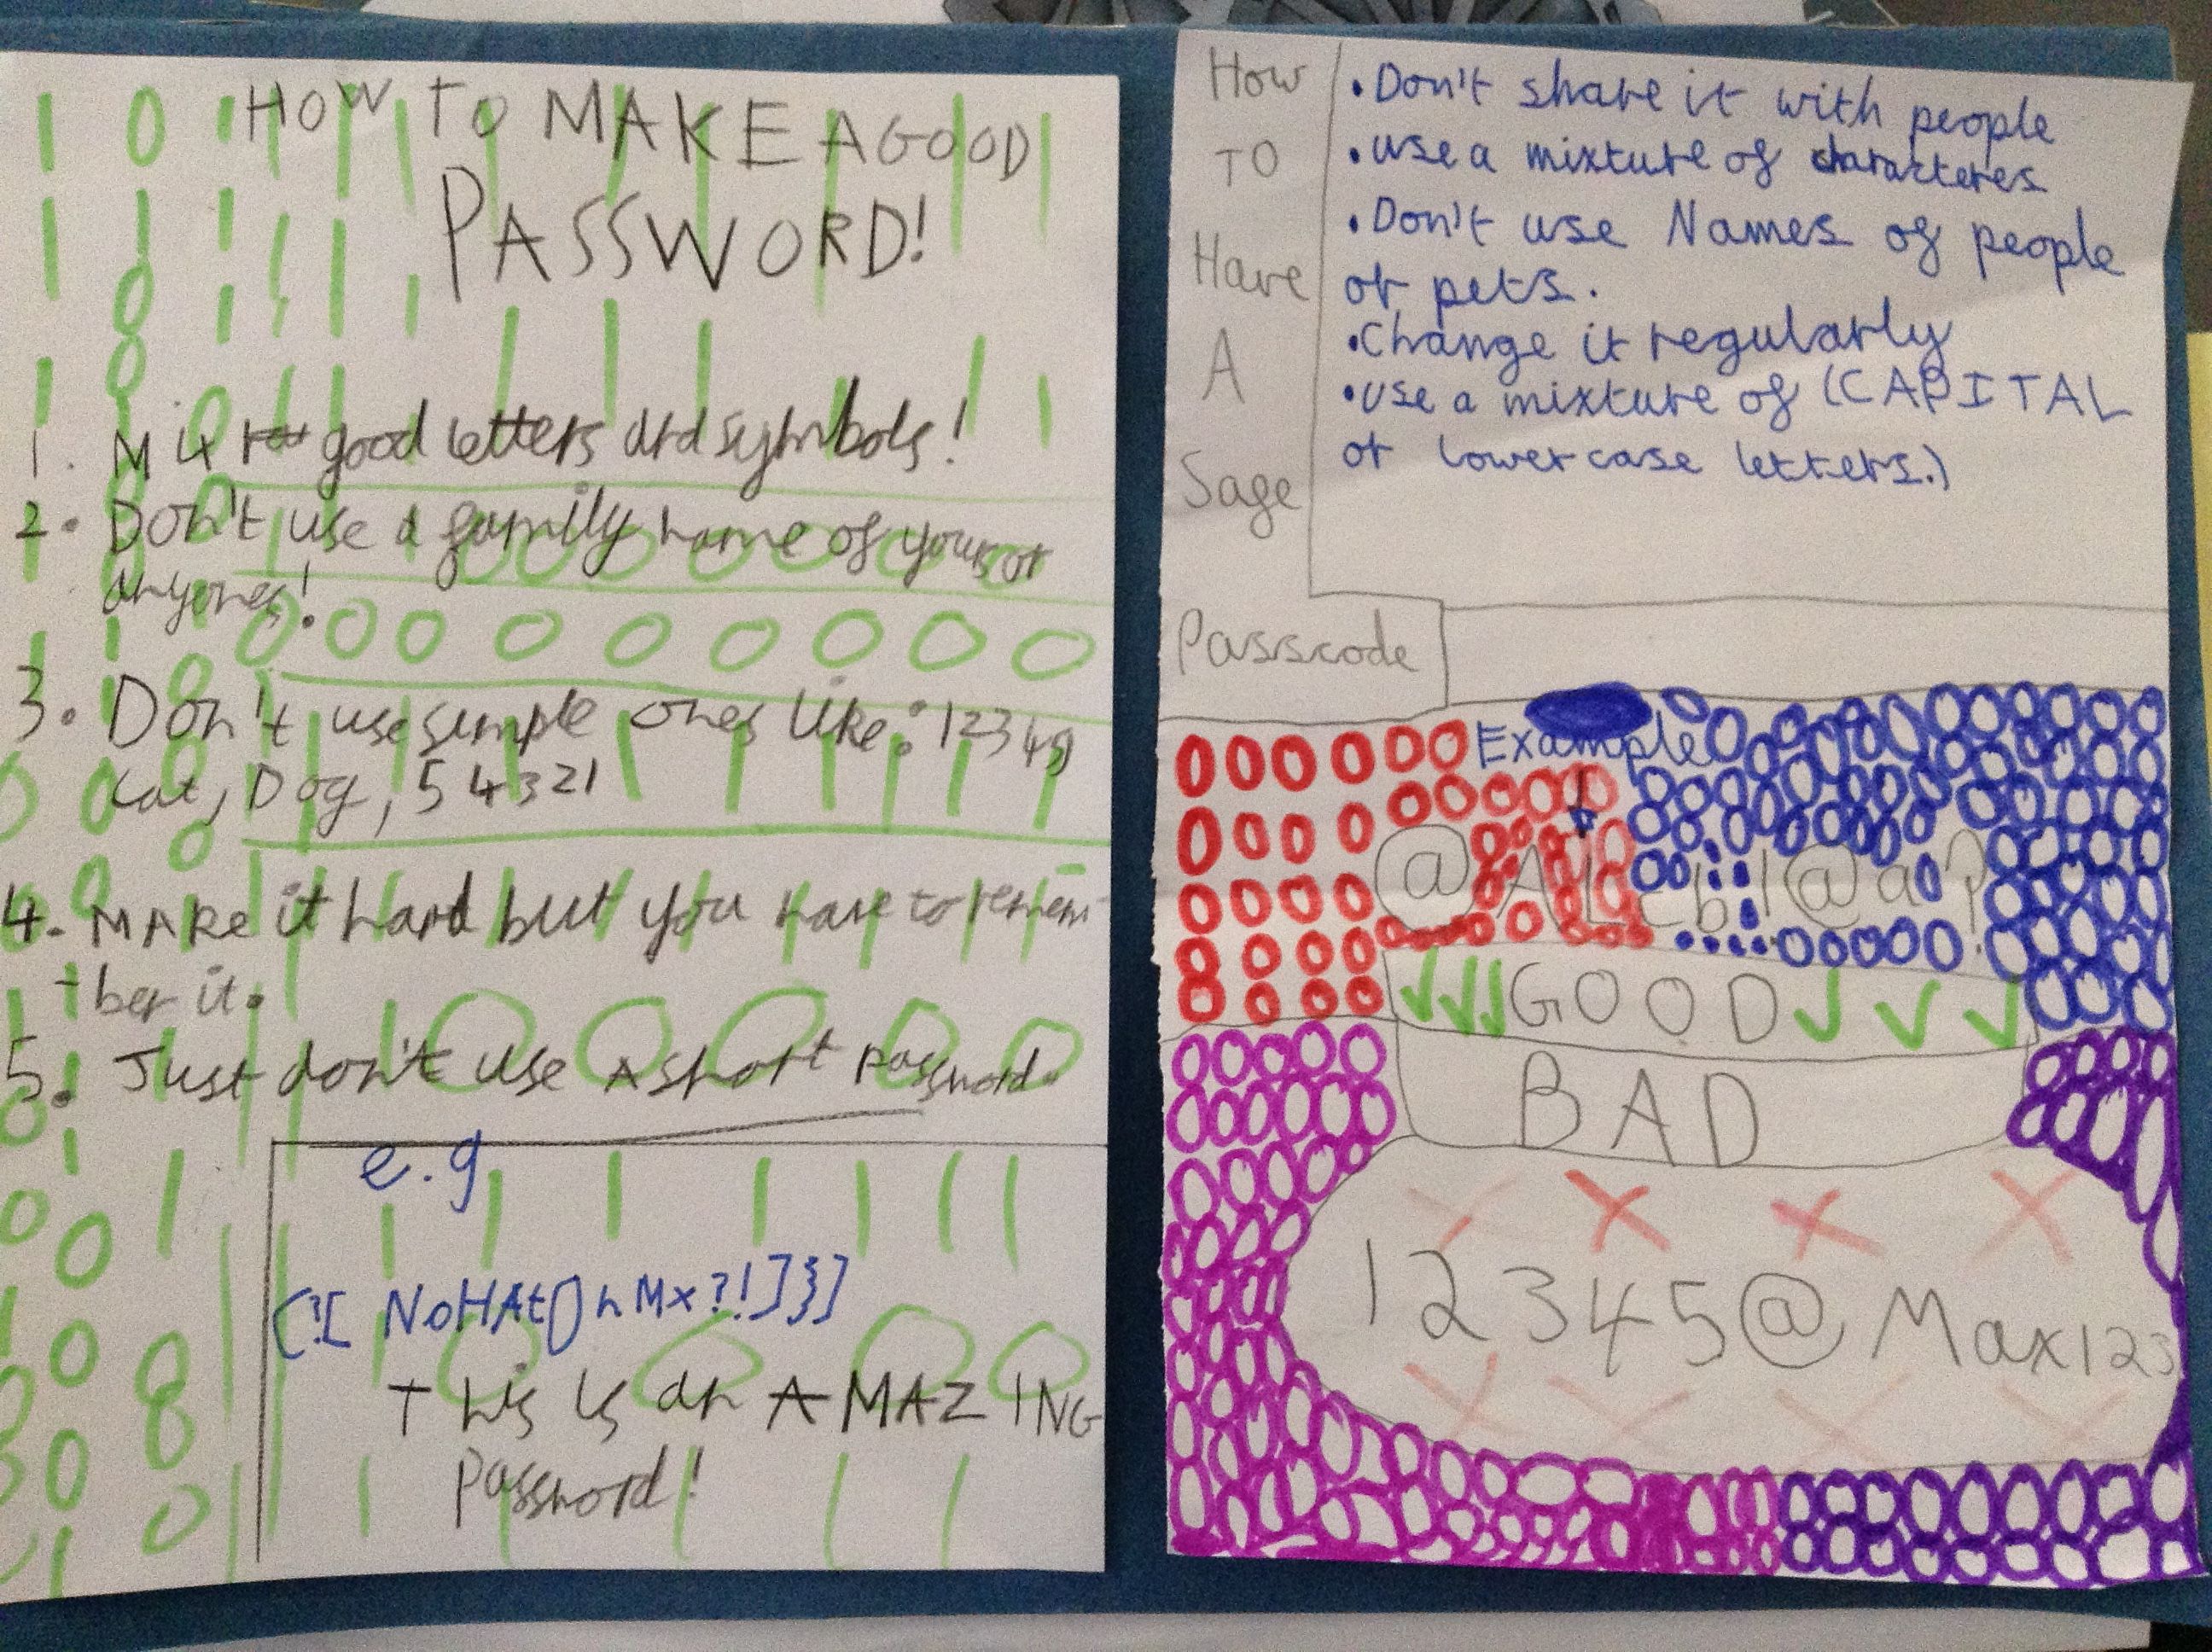 HOW TO MAKE A GOOD
PASSWORD!
1. Mix good letters and symbols!
2. Don't use a family name of yours or
anyones!
3. Don't use simple ones like: 12345,
Cat, Dog, 54321
4. MAke it hard but you have to remem
-ber it.
5. Just don't use A short password.
e.g
(?[ NoHAt[]hMx?!]}}]
This is an AMAZING
Password!
How
TO
Have
A
Sage
Passcode
•Don't share it with people
•use a mixture of characteres
•Don't use Names of people
or pets.
•Change it regularly
•use a mixture of (CAPITAL
or lowercase letters.)
Example
GOOD
BAD
12345@Max123